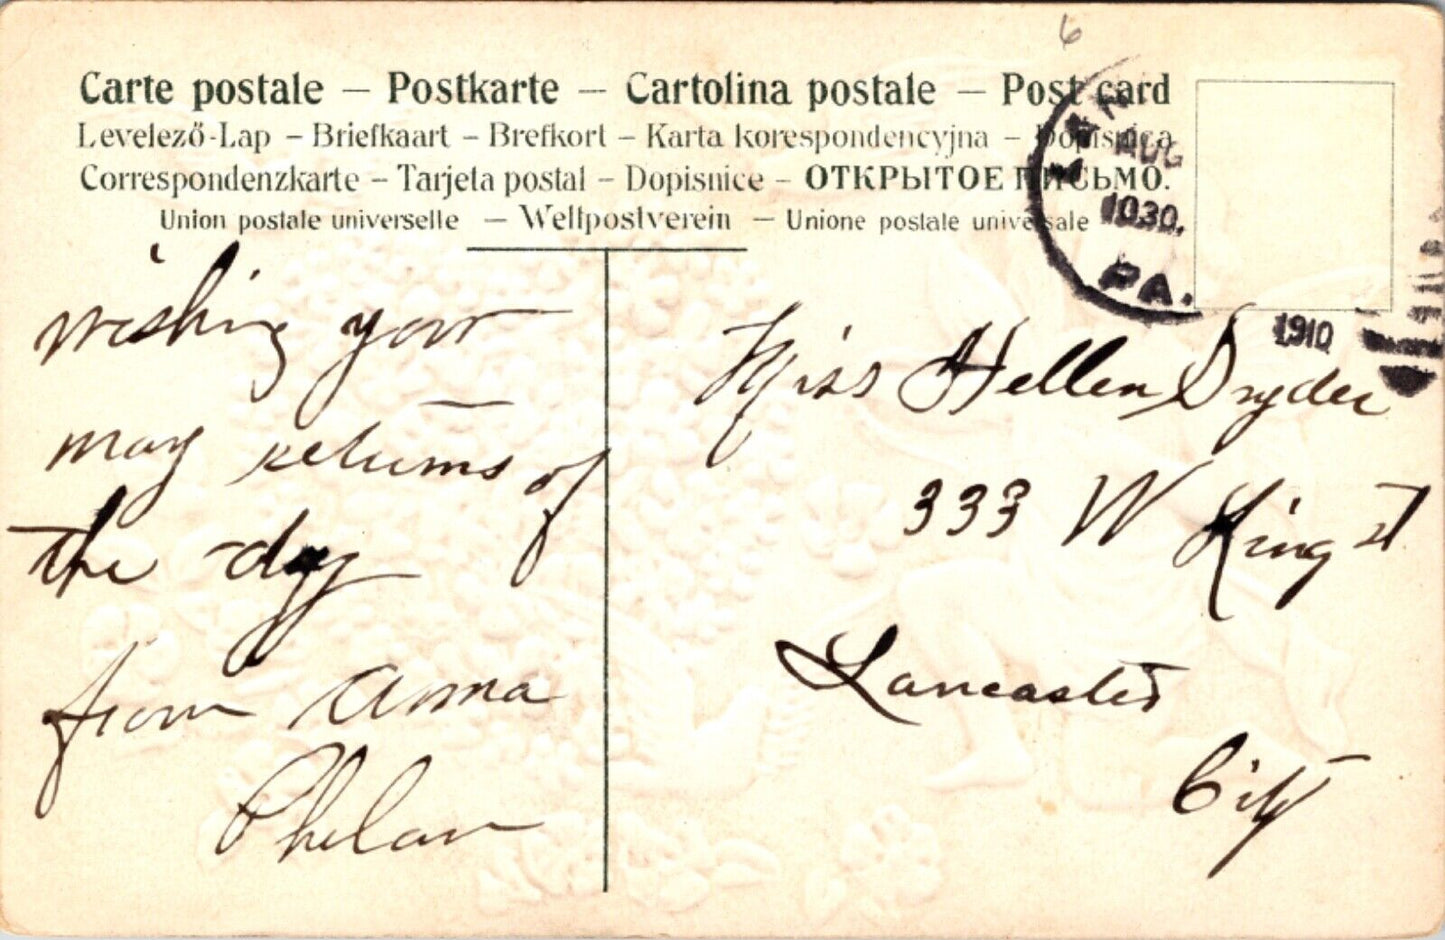 6
Carte postale – Postkarte – Cartolina postale – Post card
Levelező-Lap – Briefkaart – Brefkort – Karta korespondencyjna – Dopisnica
Correspondenzkarte – Tarjeta postal – Dopisnice – ОТКРЫТОЕ ПИСЬМО.
Union postale universelle – Weltpostverein – Unione postale universale
AUG
1030.
PA.
1910
wishing your
may returns of
the day
from Anna
Phelan
Miss Hellen Snyder
333 W King st
Lancaster
City